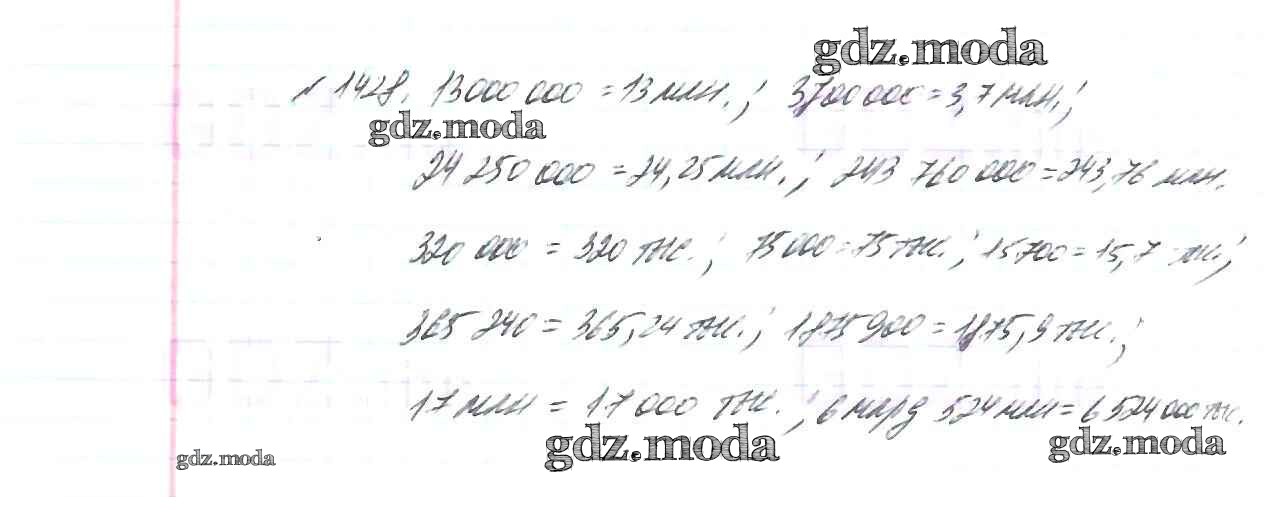 gdz.moda
№ 1428. 13 000 000 = 13 млн.; 3700 000 = 3,7 млн.;
gdz.moda
24 250 000 = 24,25 млн.; 243 760 000 = 243,76 млн.
320 000 = 320 тыс.; 75 000 = 75 тыс.; 15700 = 15,7 тыс.;
365 240 = 365,24 тыс.; 1875 900 = 1875,9 тыс.;
17 млн = 17 000 тыс.; 6 млрд 524 млн = 6 524 000 тыс.
gdz.moda gdz.moda gdz.moda